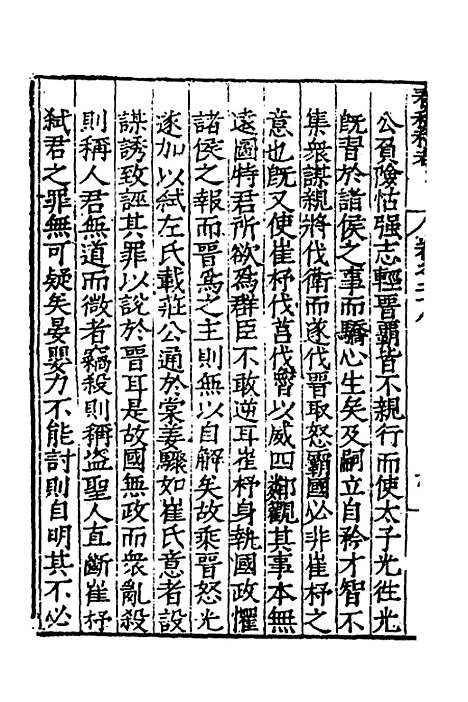 公負險怙强志輕晋霸皆不親行而使太子光往光
旣習於諸侯之事而驕心生矣及嗣立自矜才智不
集衆謀親將伐衛而遂伐晋取怒霸國必非崔杼之
意也旣又使崔杼伐莒伐魯以威四鄰觀其事本無
遠圖特君所欲爲群臣不敢逆耳崔杼身執國政懼
諸侯之報而晋爲之主則無以自解矣故乘晋怒光
遂加以弑左氏載莊公通於棠姜驟如崔氏意者設
謀誘致誣其罪以説於晋耳是故國無政而衆亂殺
則稱人君無道而微者竊殺則稱盗聖人直斷崔杼
弑君之罪無可疑矣晏嬰力不能討則自明其不必